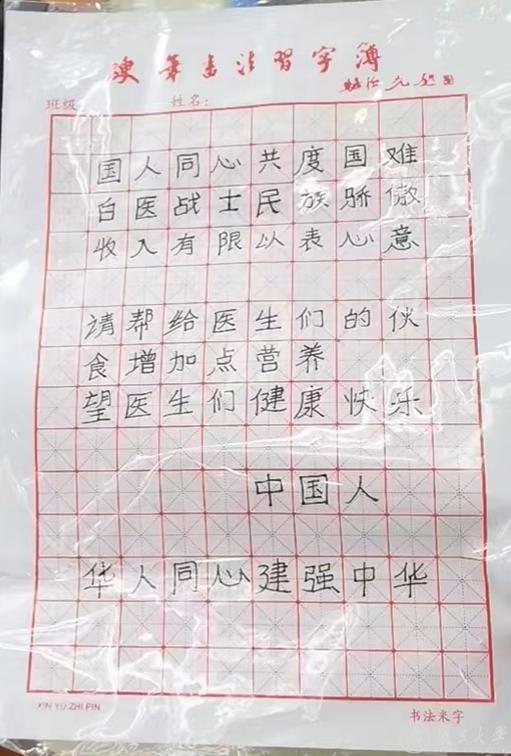 硬笔书法习字簿
班级 姓名:
国人同心共度国难
白医战士民族骄傲
收入有限以表心意
请帮给医生们的伙
食增加点营养
望医生们健康快乐
中国人
华人同心建强中华
XIN YU ZHI PIN
书法米字